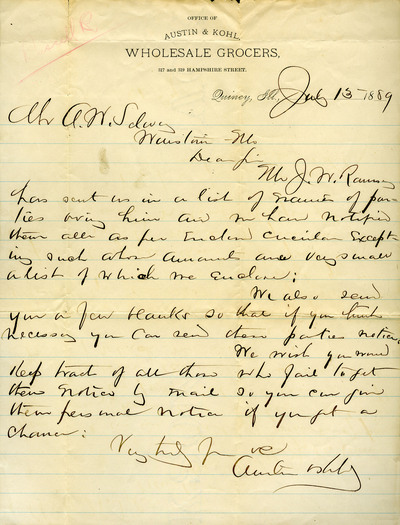 OFFICE OF
AUSTIN & KOHL,
WHOLESALE GROCERS,
317 and 319 HAMPSHIRE STREET.
Quincy, Ill., July 13 1889
Mr A. W. Selvey
Winston Mo
Dear Sir
Mr J. W. Ramsey
has sent us in a list of names of par-
ties owing him and we have notified
them all as per Enclosed circular Except-
ing such whose amounts are very small
a list of which we Enclose;
We also send
you a few blanks so that if you think
necessary you can send these parties notices
We wish you would
keep track of all those who fail to get
these notices by mail so you can give
them personal notice if you get a
chance:
Very truly yours
Austin & Kohl